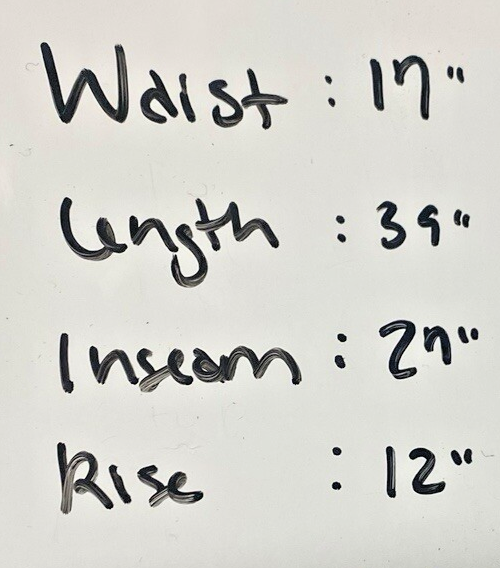 Waist : 17"
Length : 39"
Inseam : 27"
Rise : 12"